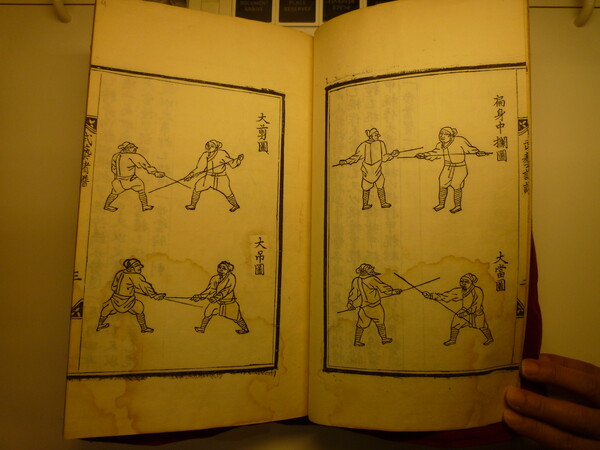 褊身中攔圖
大當圖
大剪圖
大吊圖
三